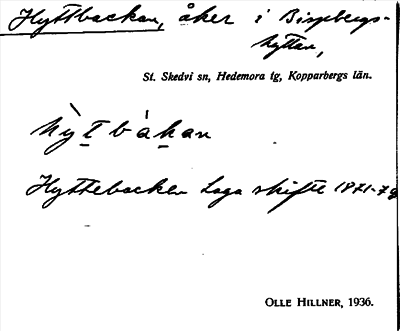 Hyttbackan, åker i Bispbergs-
hyttan,
St. Skedvi sn, Hedemora tg, Kopparbergs län.
hỳt bákan
Hyttebacken Laga skifte 1871-78
OLLE HILLNER, 1936.